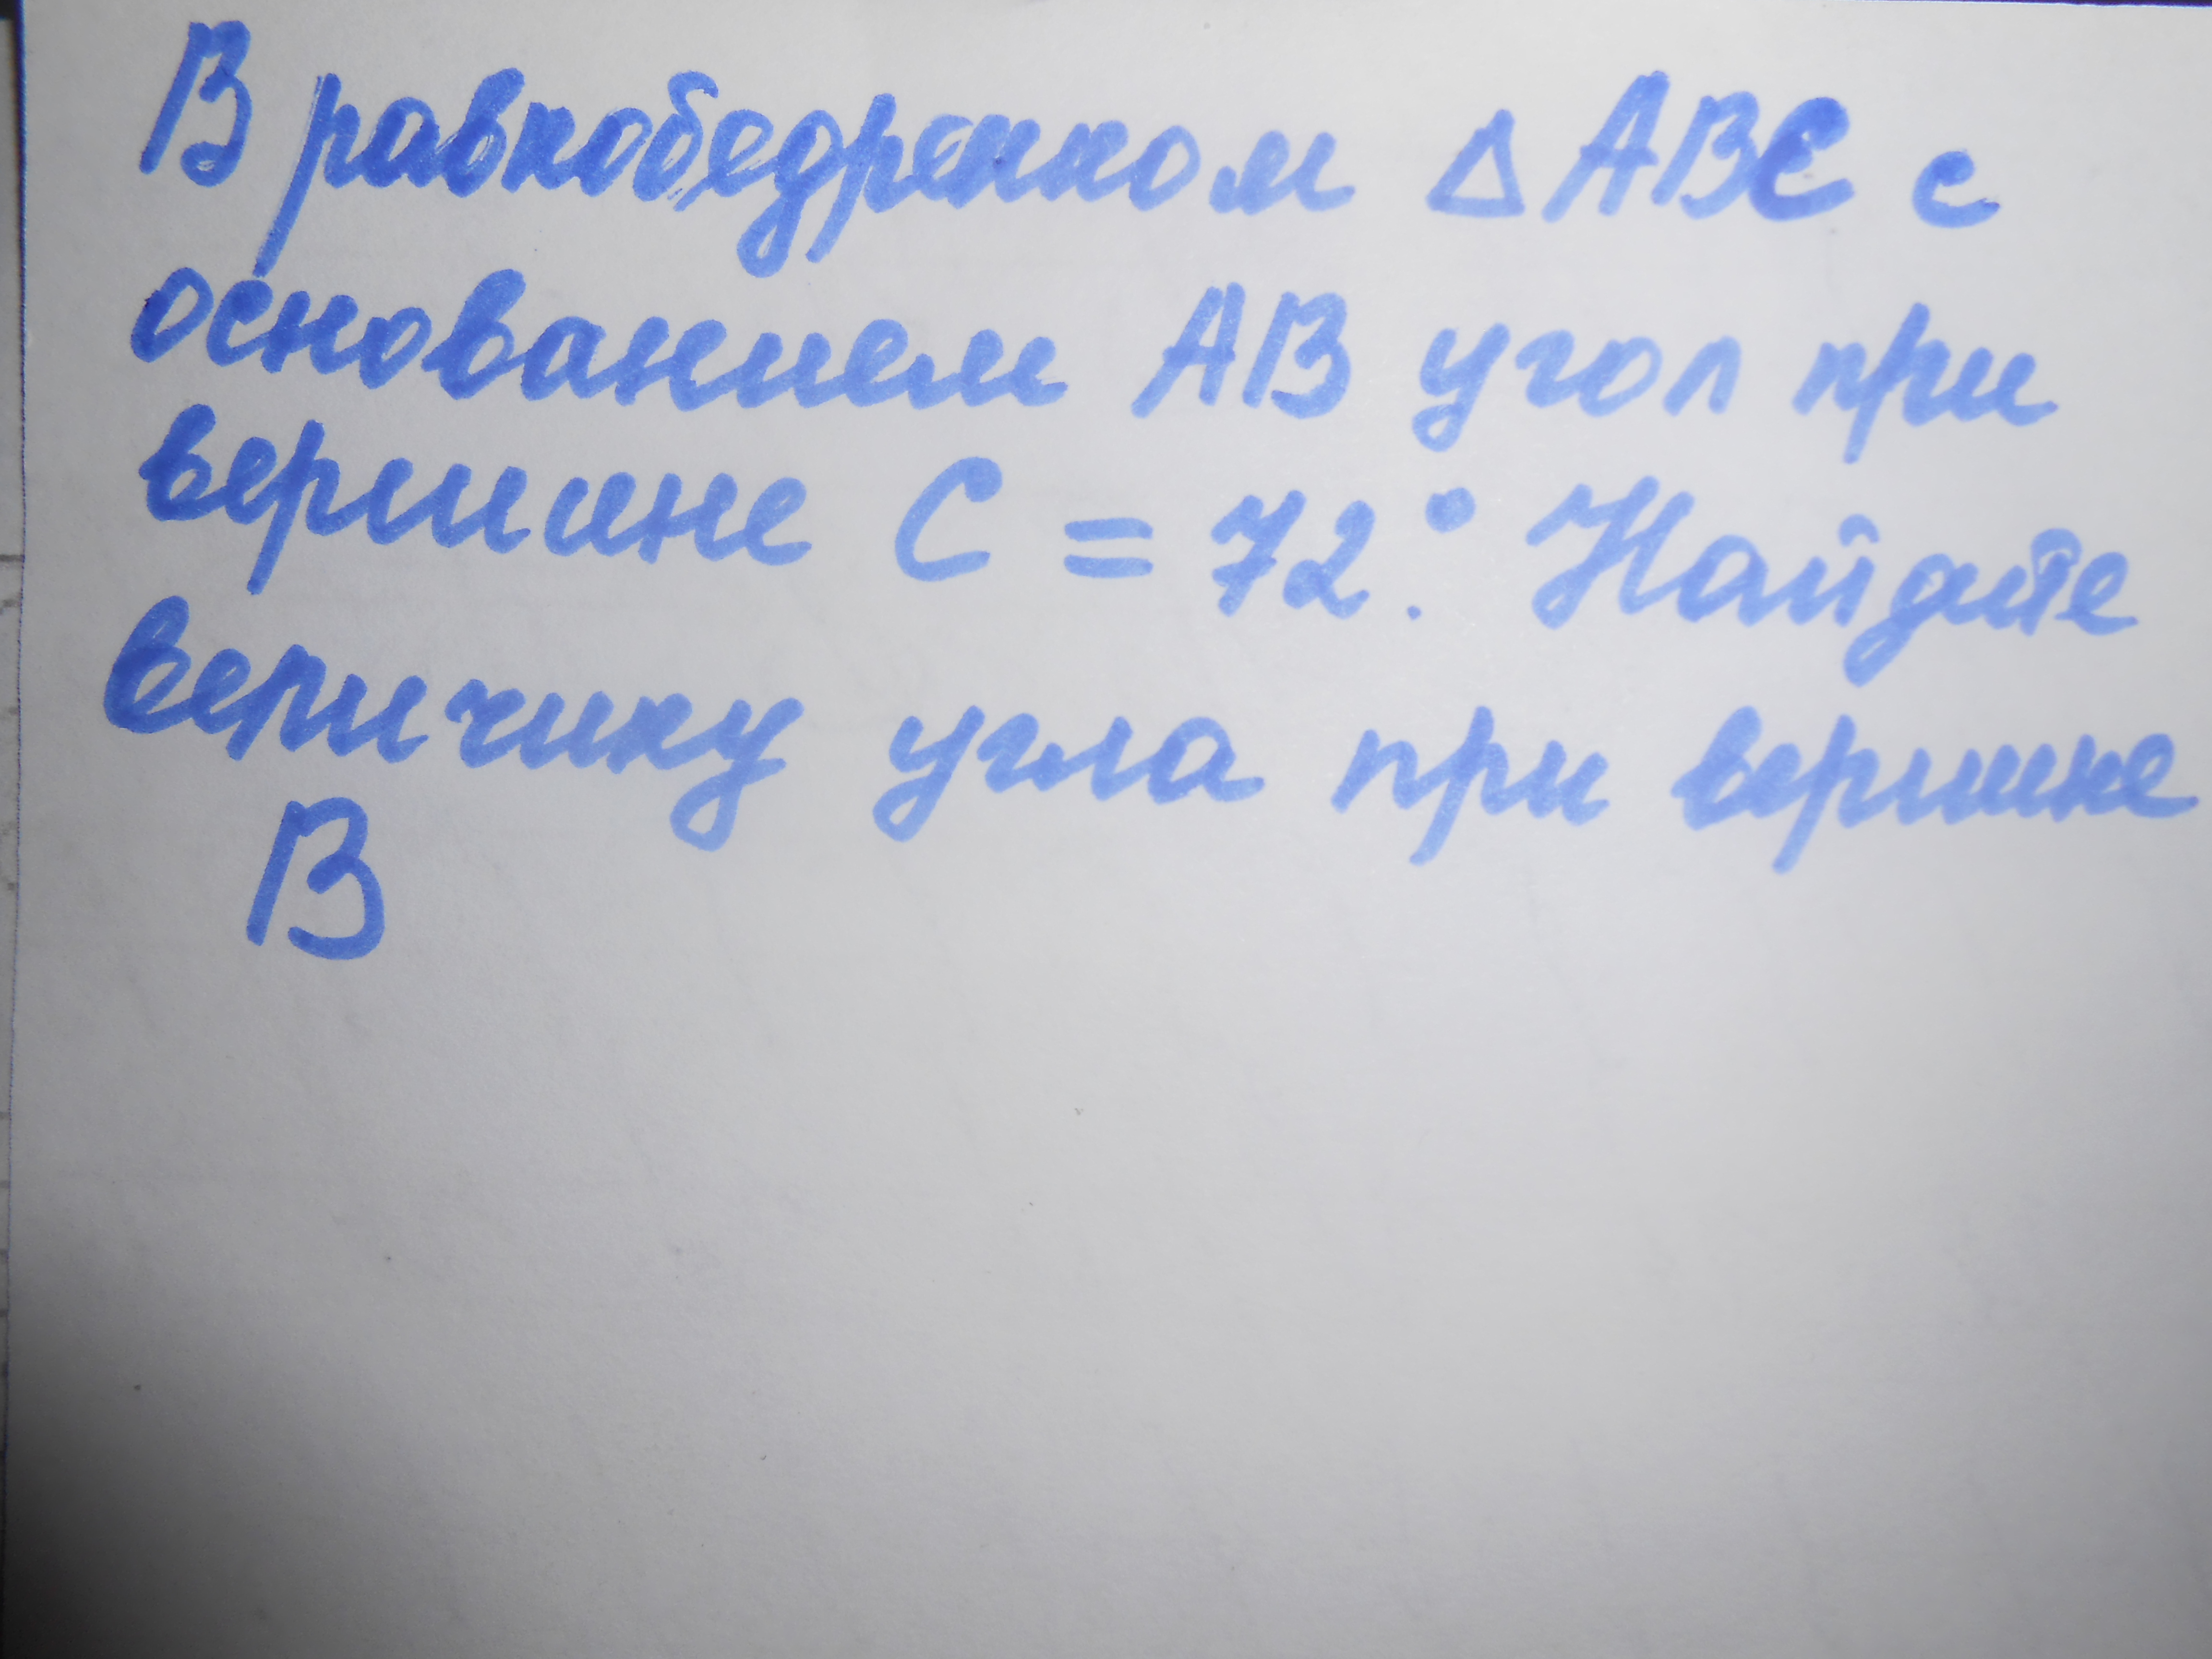 В равнобедренном △ABC с
основанием AB угол при
вершине C = 72°. Найдите
величину угла при вершине
B